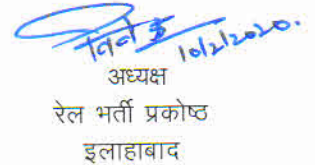 10/2/2020.
अध्यक्ष
रेल भर्ती प्रकोष्ठ
इलाहाबाद